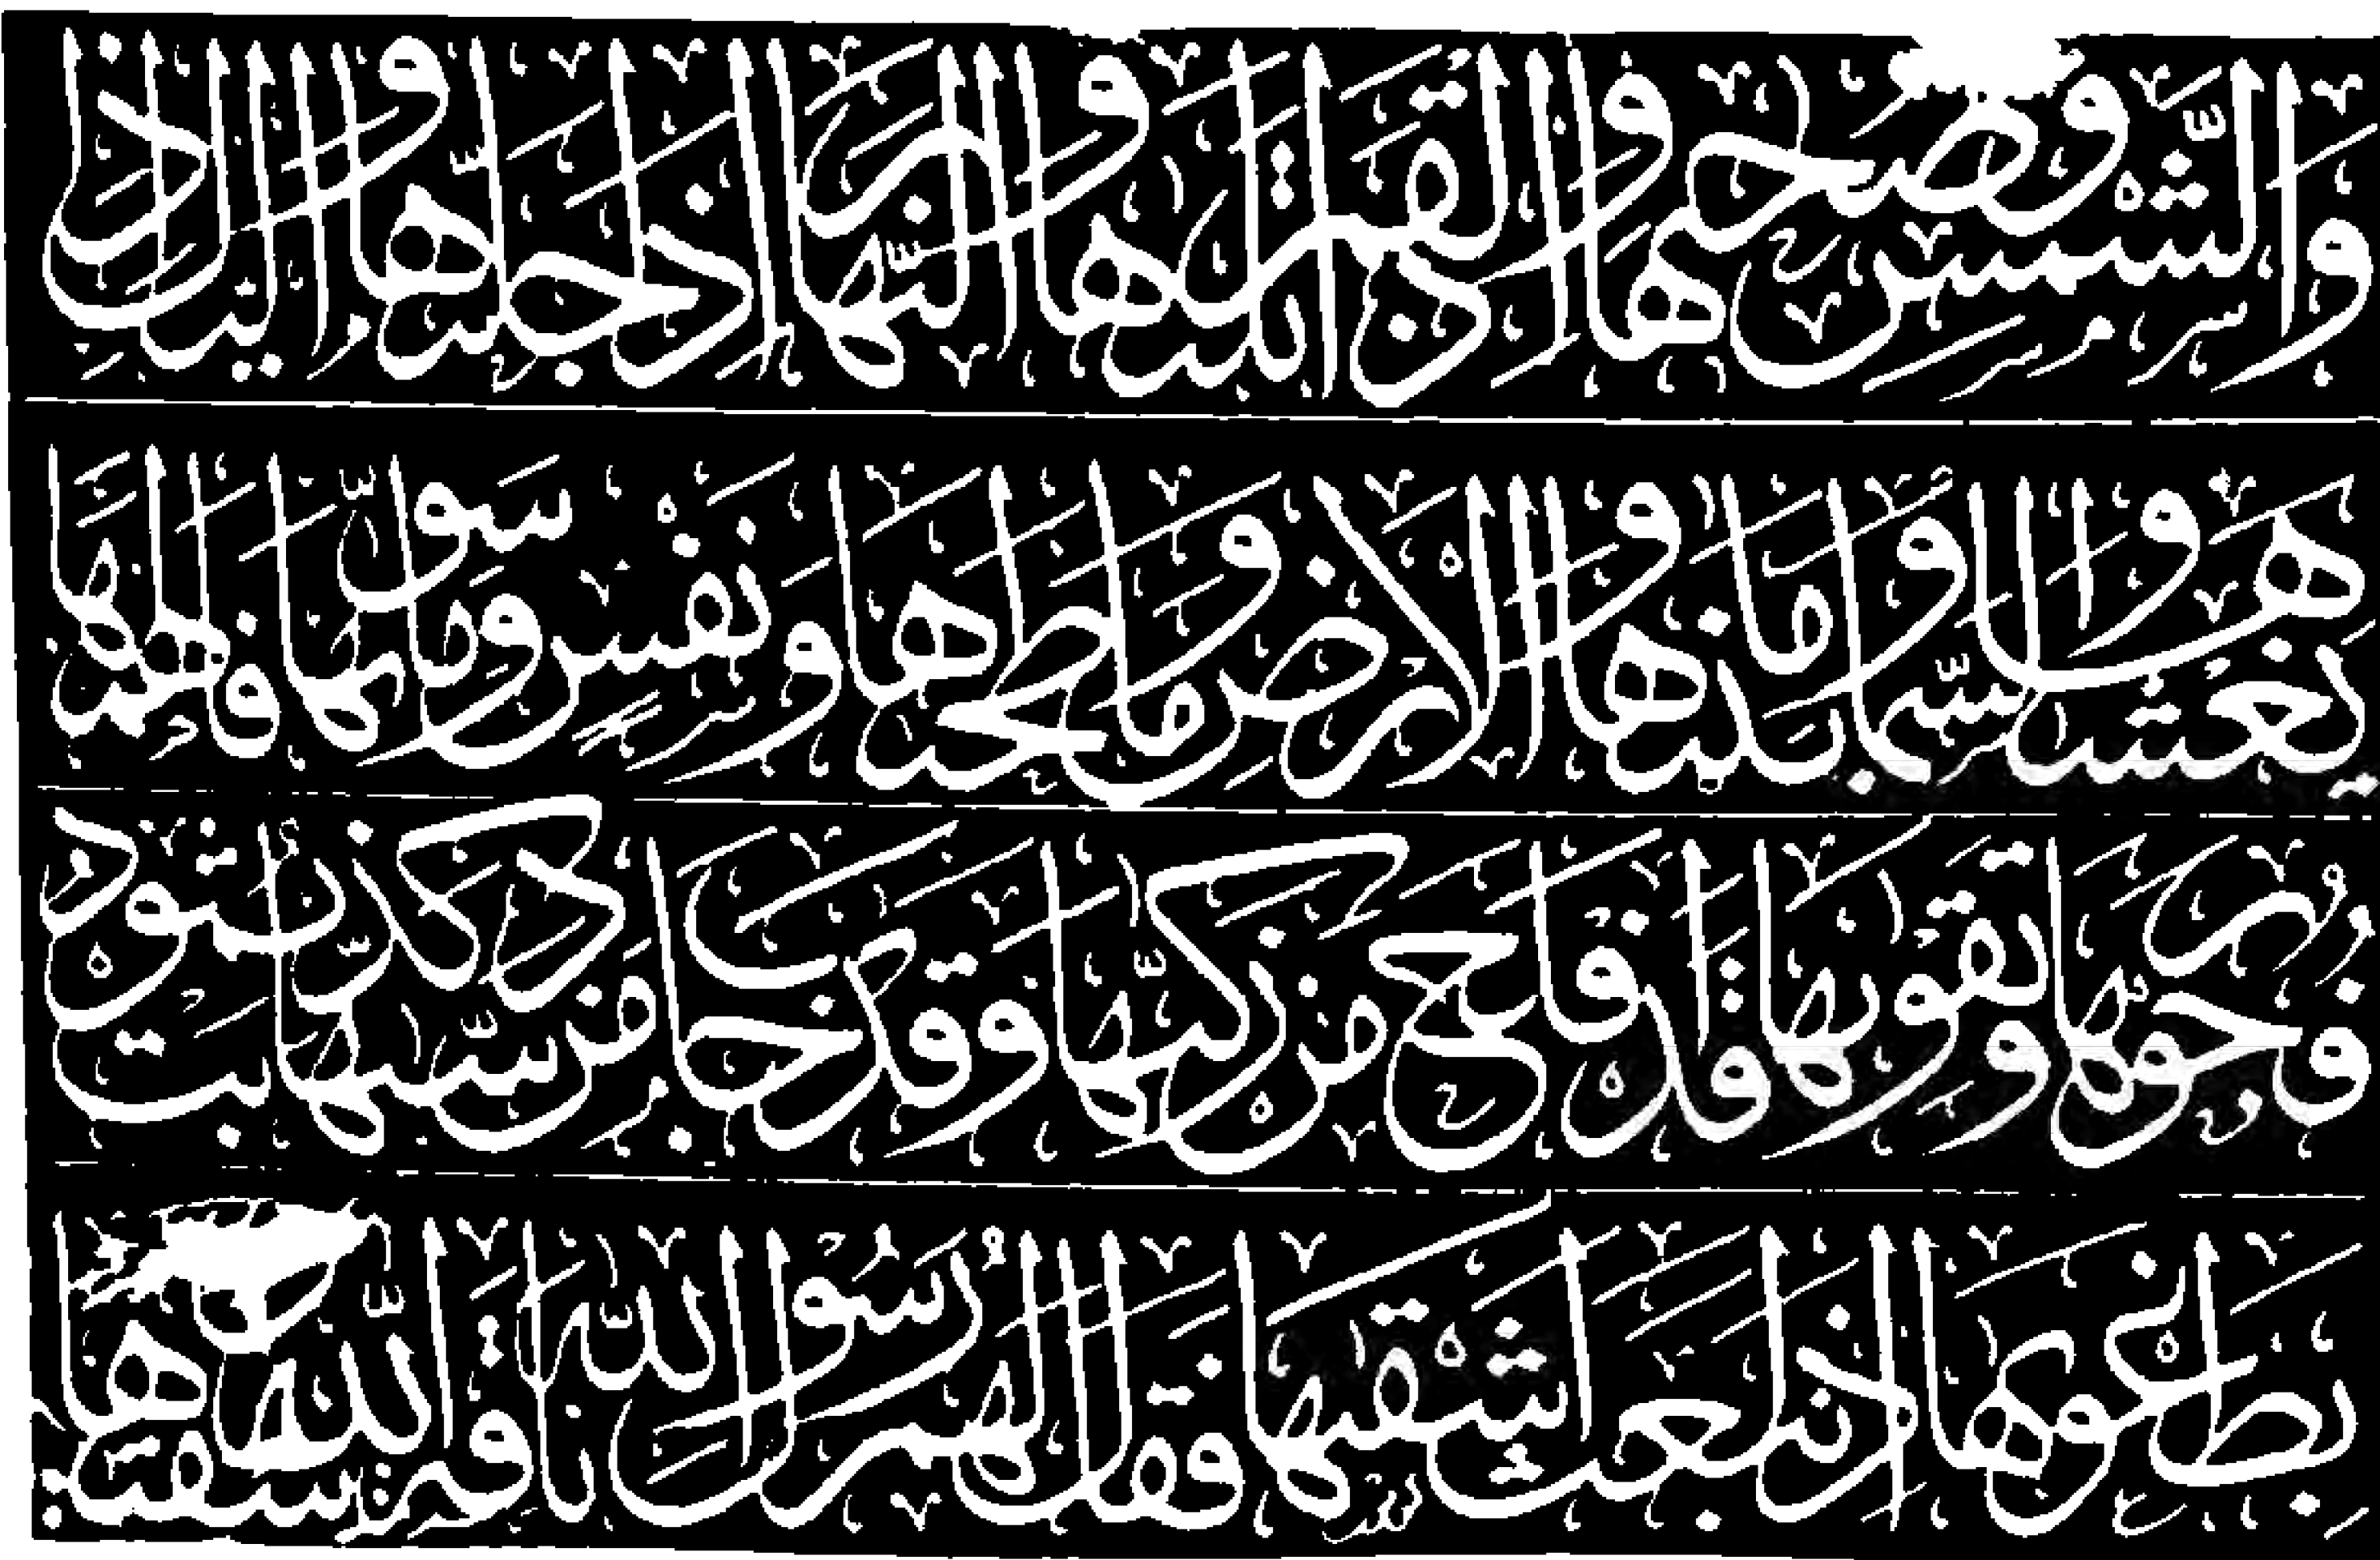 والشمس وضحىها والقمر اذا تلىها والنهار اذا جلىها واليل اذا
يغشىها والسماء وما بنىها والارض وما طحىها ونفس وما سوىها فالهمها
فجورها وتقوىها قد افلح من زكىها وقد خاب من دسىها كذبت ثمود
بطغوىها اذ انبعث اشقىها فقال لهم رسول الله ناقة الله وسقيىها